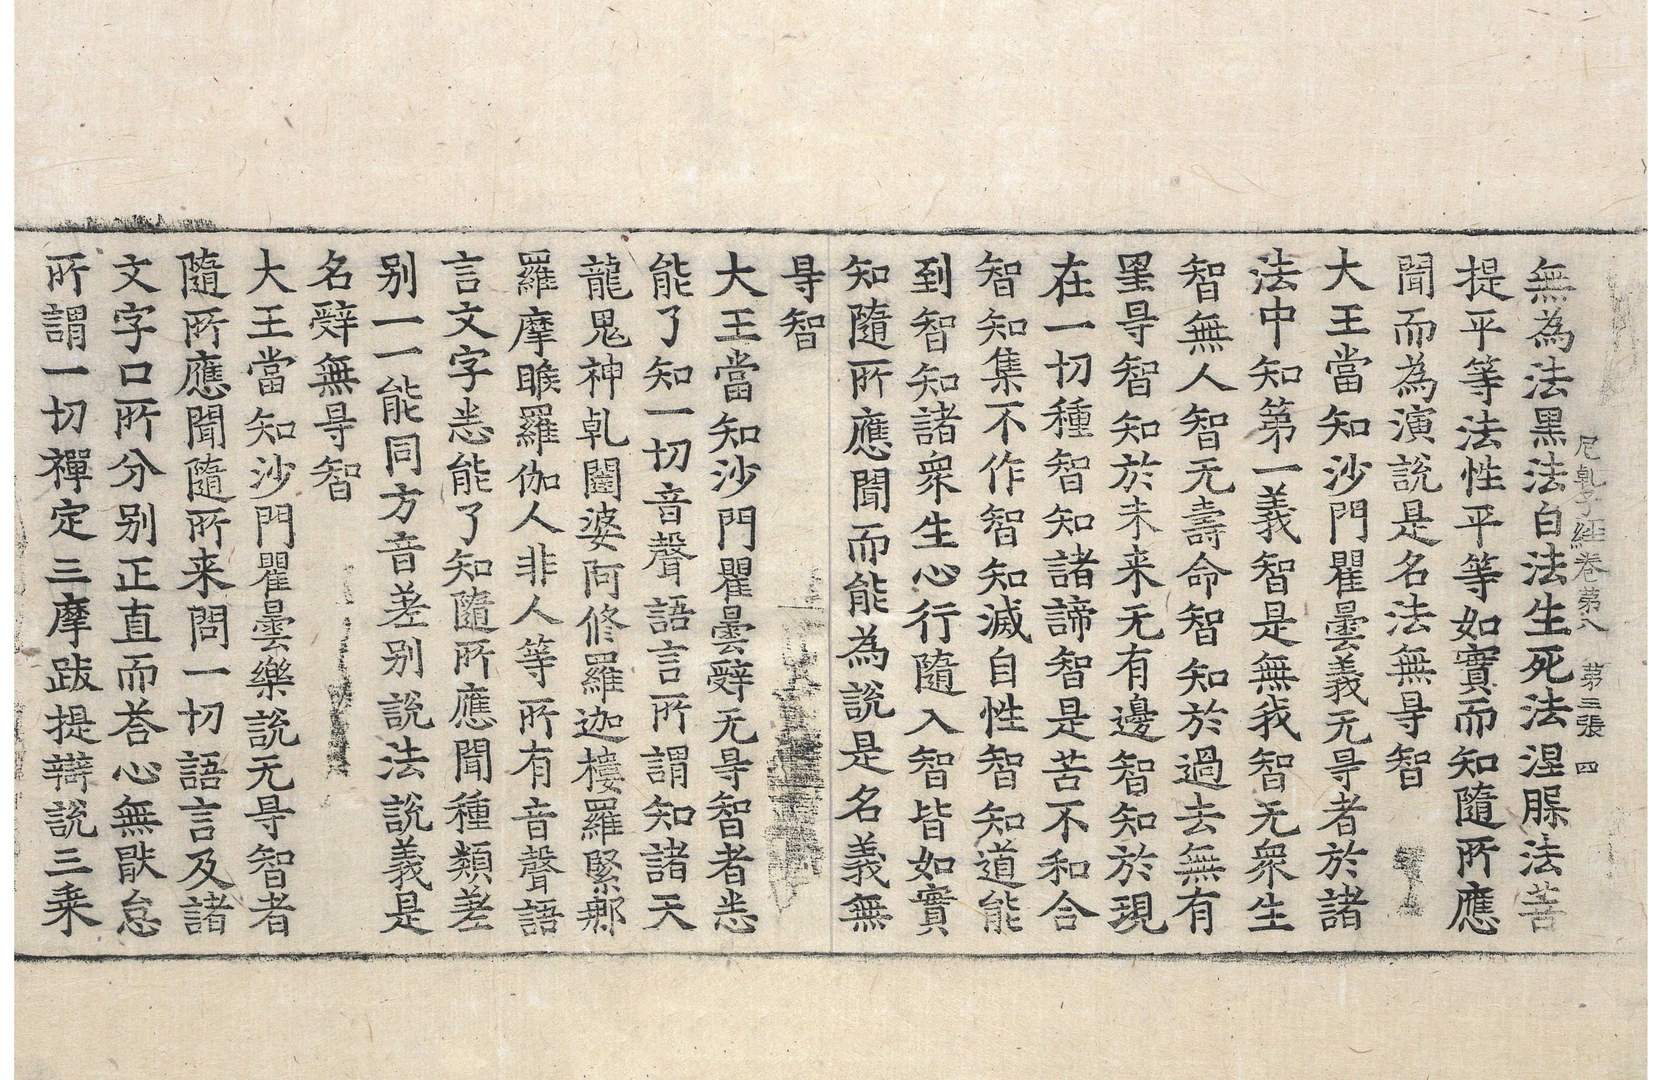 尼乹子經卷第八 第三張 四
無為法黒法白法生死法涅槃法菩
提平等法性平等如實而知隨所應
聞而為演說是名法無㝵智
大王當知沙門瞿曇義无㝵者於諸
法中知第一義智是無我智无衆生
智無人智无壽命智知於過去無有
罣㝵智知於未来无有邊智知於現
在一切種智知諸諦智是苦不和合
智知集不作智知滅自性智知道能
到智知諸衆生心行隨入智皆如實
知隨所應聞而能為說是名義無
㝵智
大王當知沙門瞿曇辝无㝵智者悉
能了知一切音聲語言所謂知諸天
龍鬼神乹闥婆阿修羅迦樓羅緊那
羅摩睺羅伽人非人等所有音聲語
言文字悉能了知隨所應聞種類差
别一一能同方音差别說法說義是
名辝無㝵智
大王當知沙門瞿曇樂說无㝵智者
隨所應聞隨所来問一切語言及諸
文字口所分别正直而荅心無猒怠
所謂一切禪定三摩跋提辯說三乗